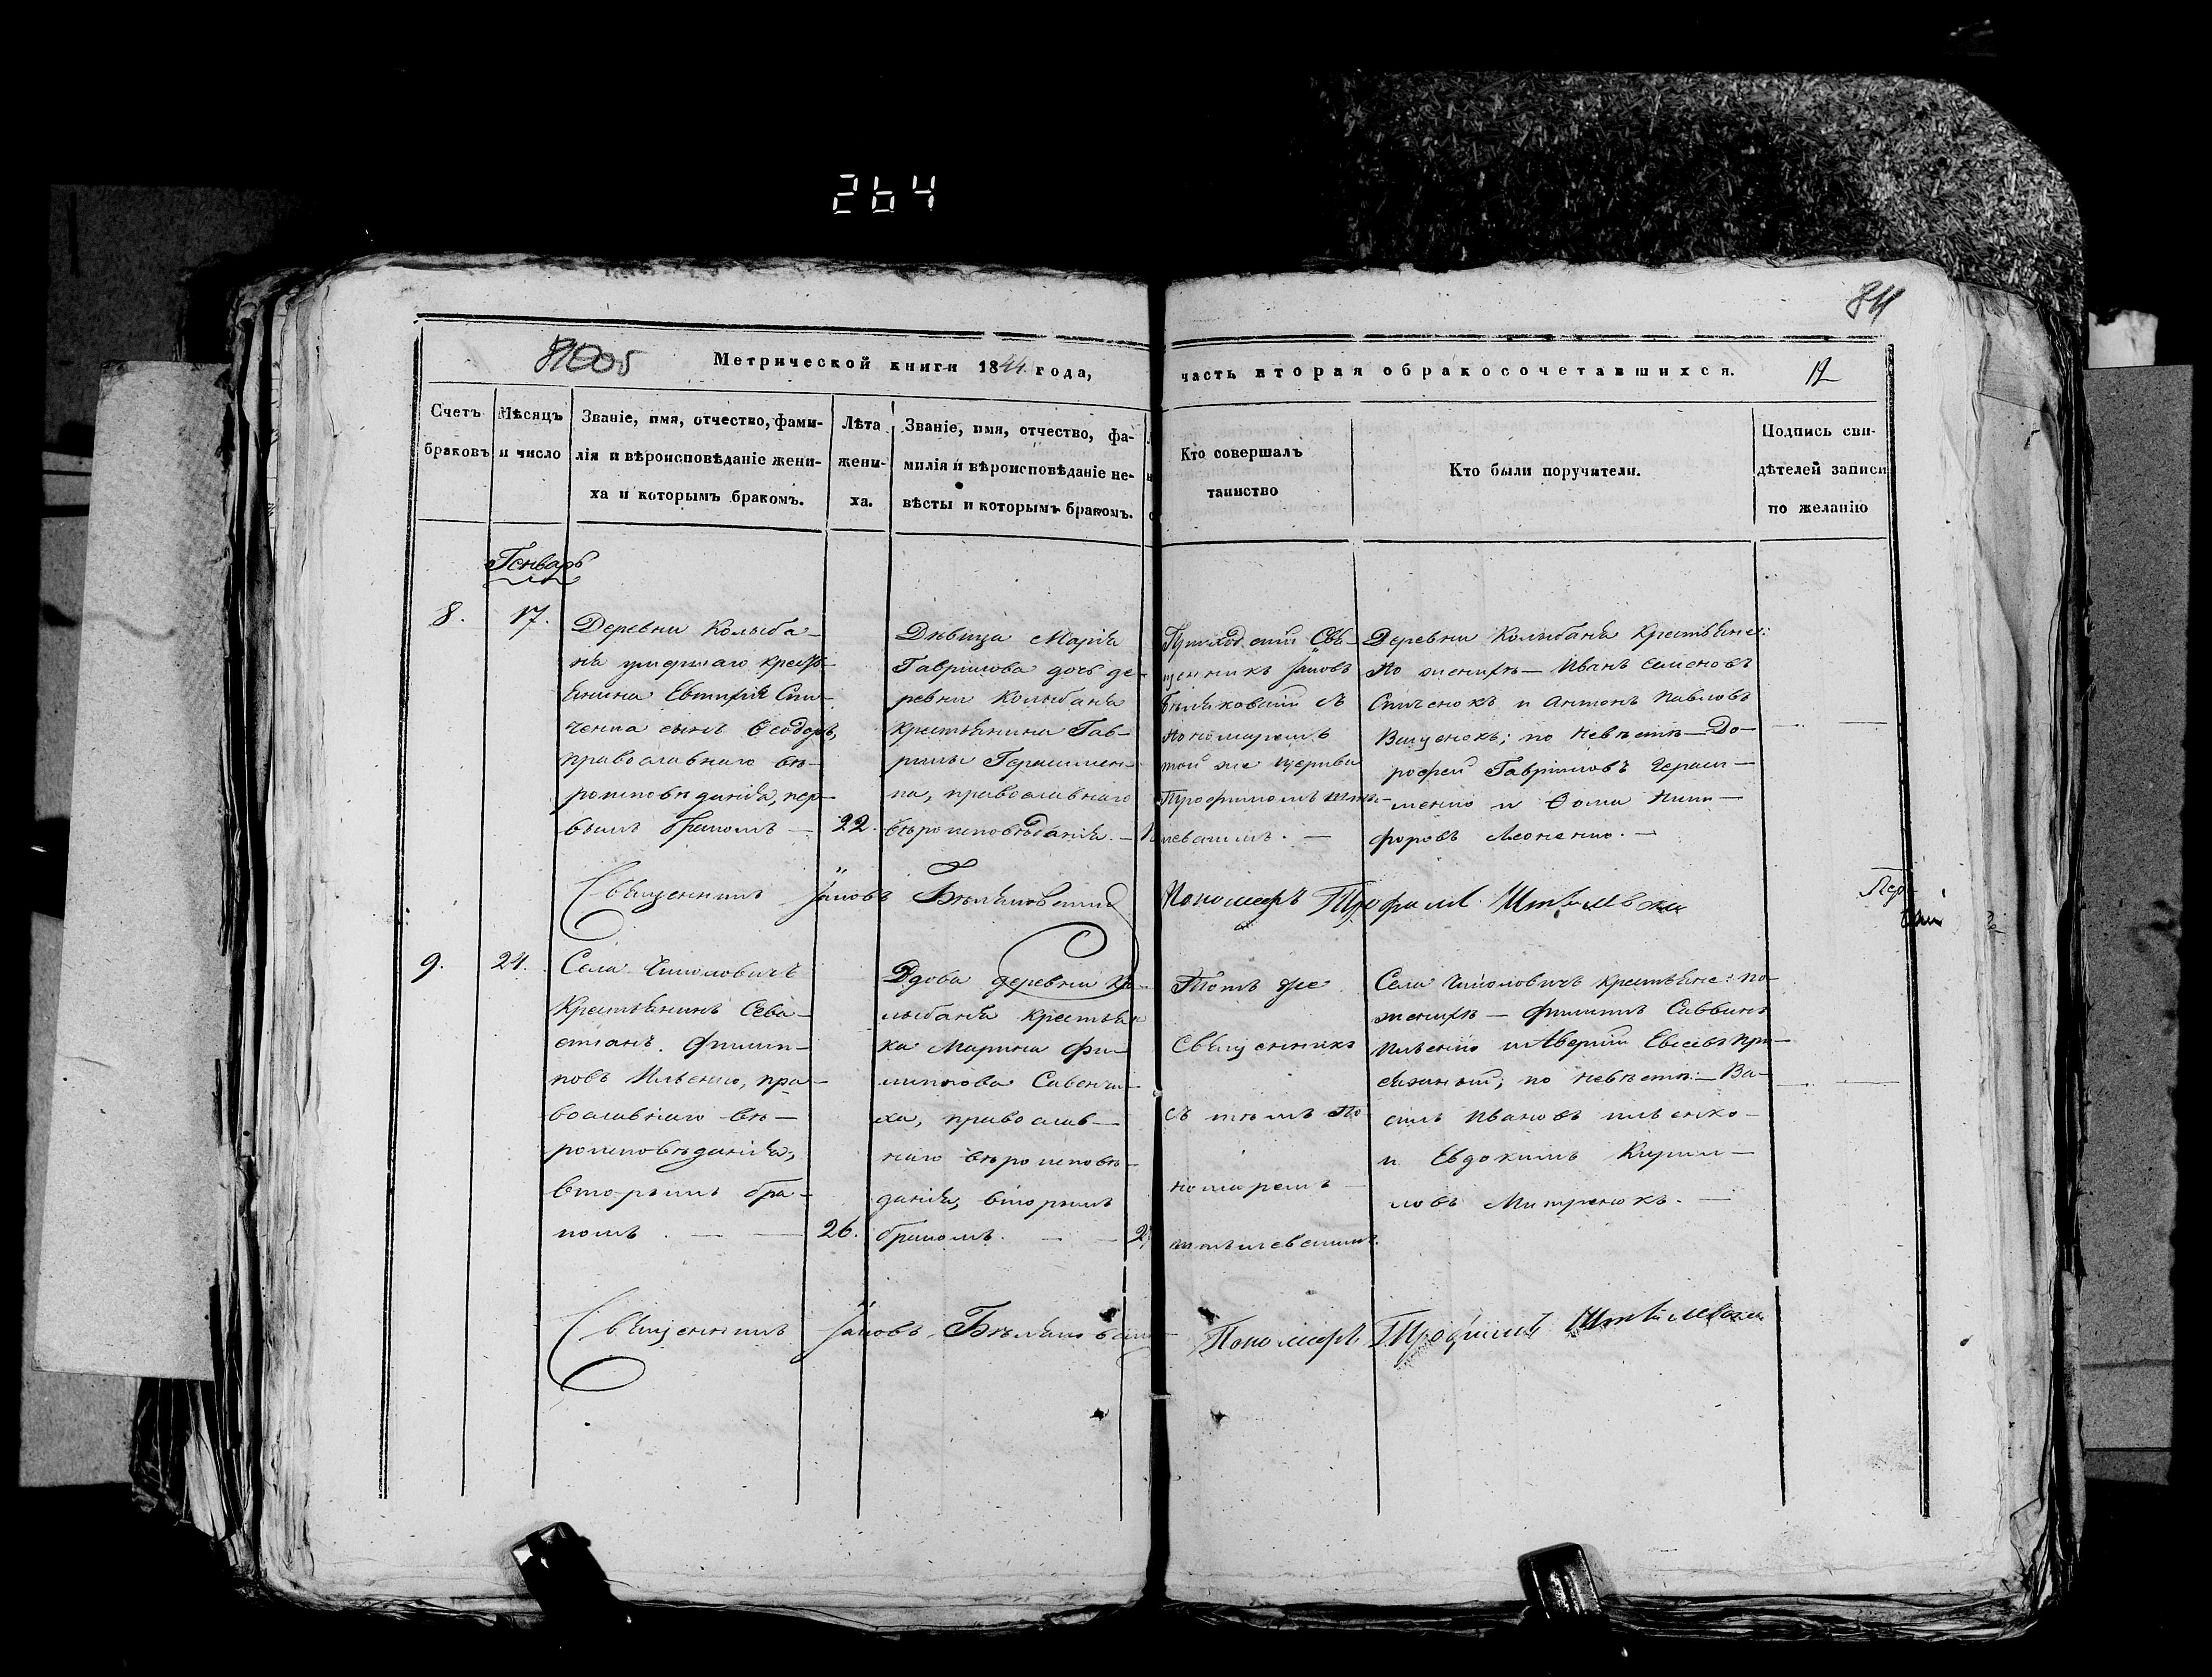 264
84
Метрической книги 1844 года,
часть вторая о бракосочетавшихся.
12
Счетъ браковъ
Мѣсяцъ и число
Званіе, имя, отчество, фами-
лія и вѣроисповѣданіе жени-
ха и которымъ бракомъ.
Лѣта
жени-
ха.
Званіе, имя, отчество, фа-
милія и вѣроисповѣданіе не-
вѣсты и которымъ бракомъ.
Кто совершалъ
таинство
Кто были поручители.
Подпись сви-
дѣтелей записи
по желанію
Генварь
8.
17.
Деревни Колыба-
ня умершаго кресть-
янина Евтихія Спи-
ченка сынъ Ѳеодоръ,
православнаго вѣ-
роисповѣданія, пер-
вымъ бракомъ —
22.
Дѣвица Марія
Гавріилова дочь де-
ревни Колыбаня
крестьянина Гав-
риилы Герасимен-
ка, православнаго
вѣроисповѣданія. —
Приходскій Свя-
щенникъ Іаковъ
Бѣляковскій съ
пономаремъ
той же церкви
Трофимомъ
Деревни Колыбаня Крестьяне:
по женихѣ — Иванъ Семеновъ
Спиченокъ и Антонъ Павловъ
по невѣстѣ — До-
рофей Гавріиловъ Гераси-
менко и Ѳома Ники-
форовъ Леоненко. —
Священникъ Іаковъ Бѣляковскій
Пономарь Трофимъ
9.
24.
Села
Крестьянинъ Сева-
стіанъ Филип-
повъ Ильенко, пра-
вославнаго вѣ-
роисповѣданія,
вторымъ бра-
комъ. —
26.
Вдова деревни Ко-
лыбаня крестьян
ка Марина Фи-
липпова Савенчи-
ха, православ-
наго вѣроисповѣ-
данія, вторымъ
бракомъ. —
Тотъ же
Священникъ
съ тѣмъ по
номаремъ
Села крестьяне: по
женихѣ — Филиппъ Саввинъ
Ильенко и Аверкій Евсевъ
по невѣстѣ: — Ва-
силь Ивановъ Ильенко
и Евдокимъ Кирил-
ловъ Митренокъ. —
Священникъ Іаковъ Бѣляковскій
Пономарь Трофимъ